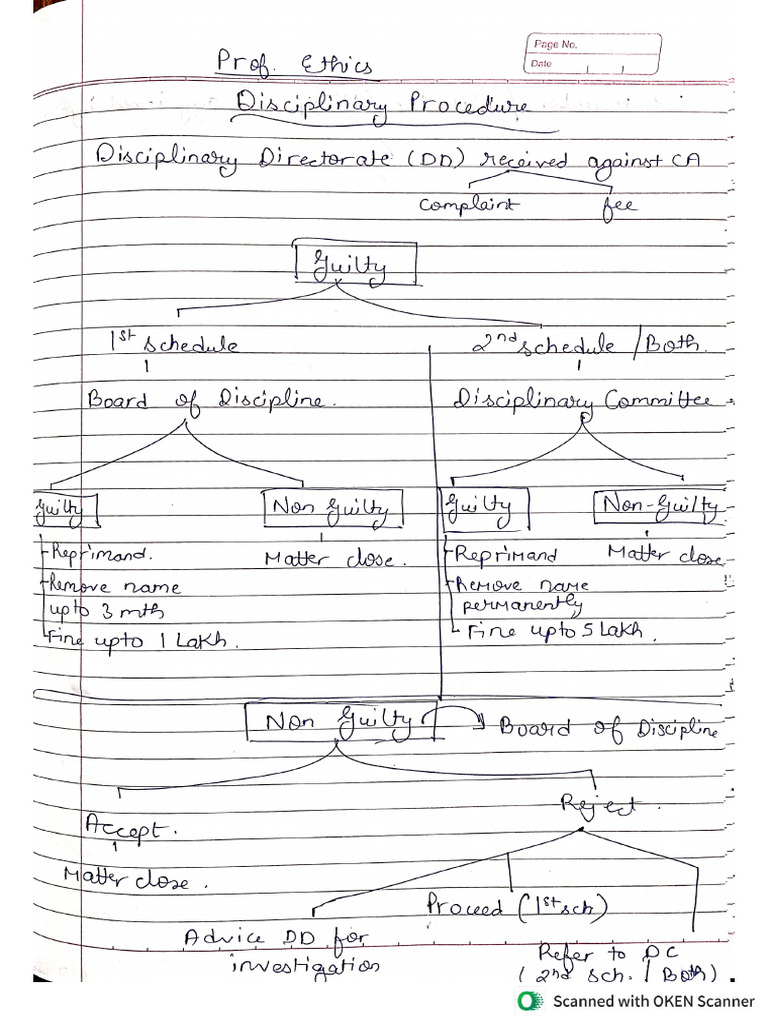 Prof. Ethics
Page No.
Date
Disciplinary Procedure
Disciplinary Directorate (DD) received against CA
Complaint fee
Guilty
1st schedule 2nd schedule / Both.
Board of Discipline. Disciplinary Committee
Guilty Non Guilty Guilty Non-Guilty
Reprimand. Matter close. Reprimand Matter close
Remove name Remove name
upto 3 mth permanently
Fine upto 1 Lakh. Fine upto 5 Lakh.
Non Guilty Board of Discipline
Accept. Reject.
Matter close.
Proceed (1st sch)
Advice DD for Refer to DC
investigation (2nd sch. / Both).
Scanned with OKEN Scanner